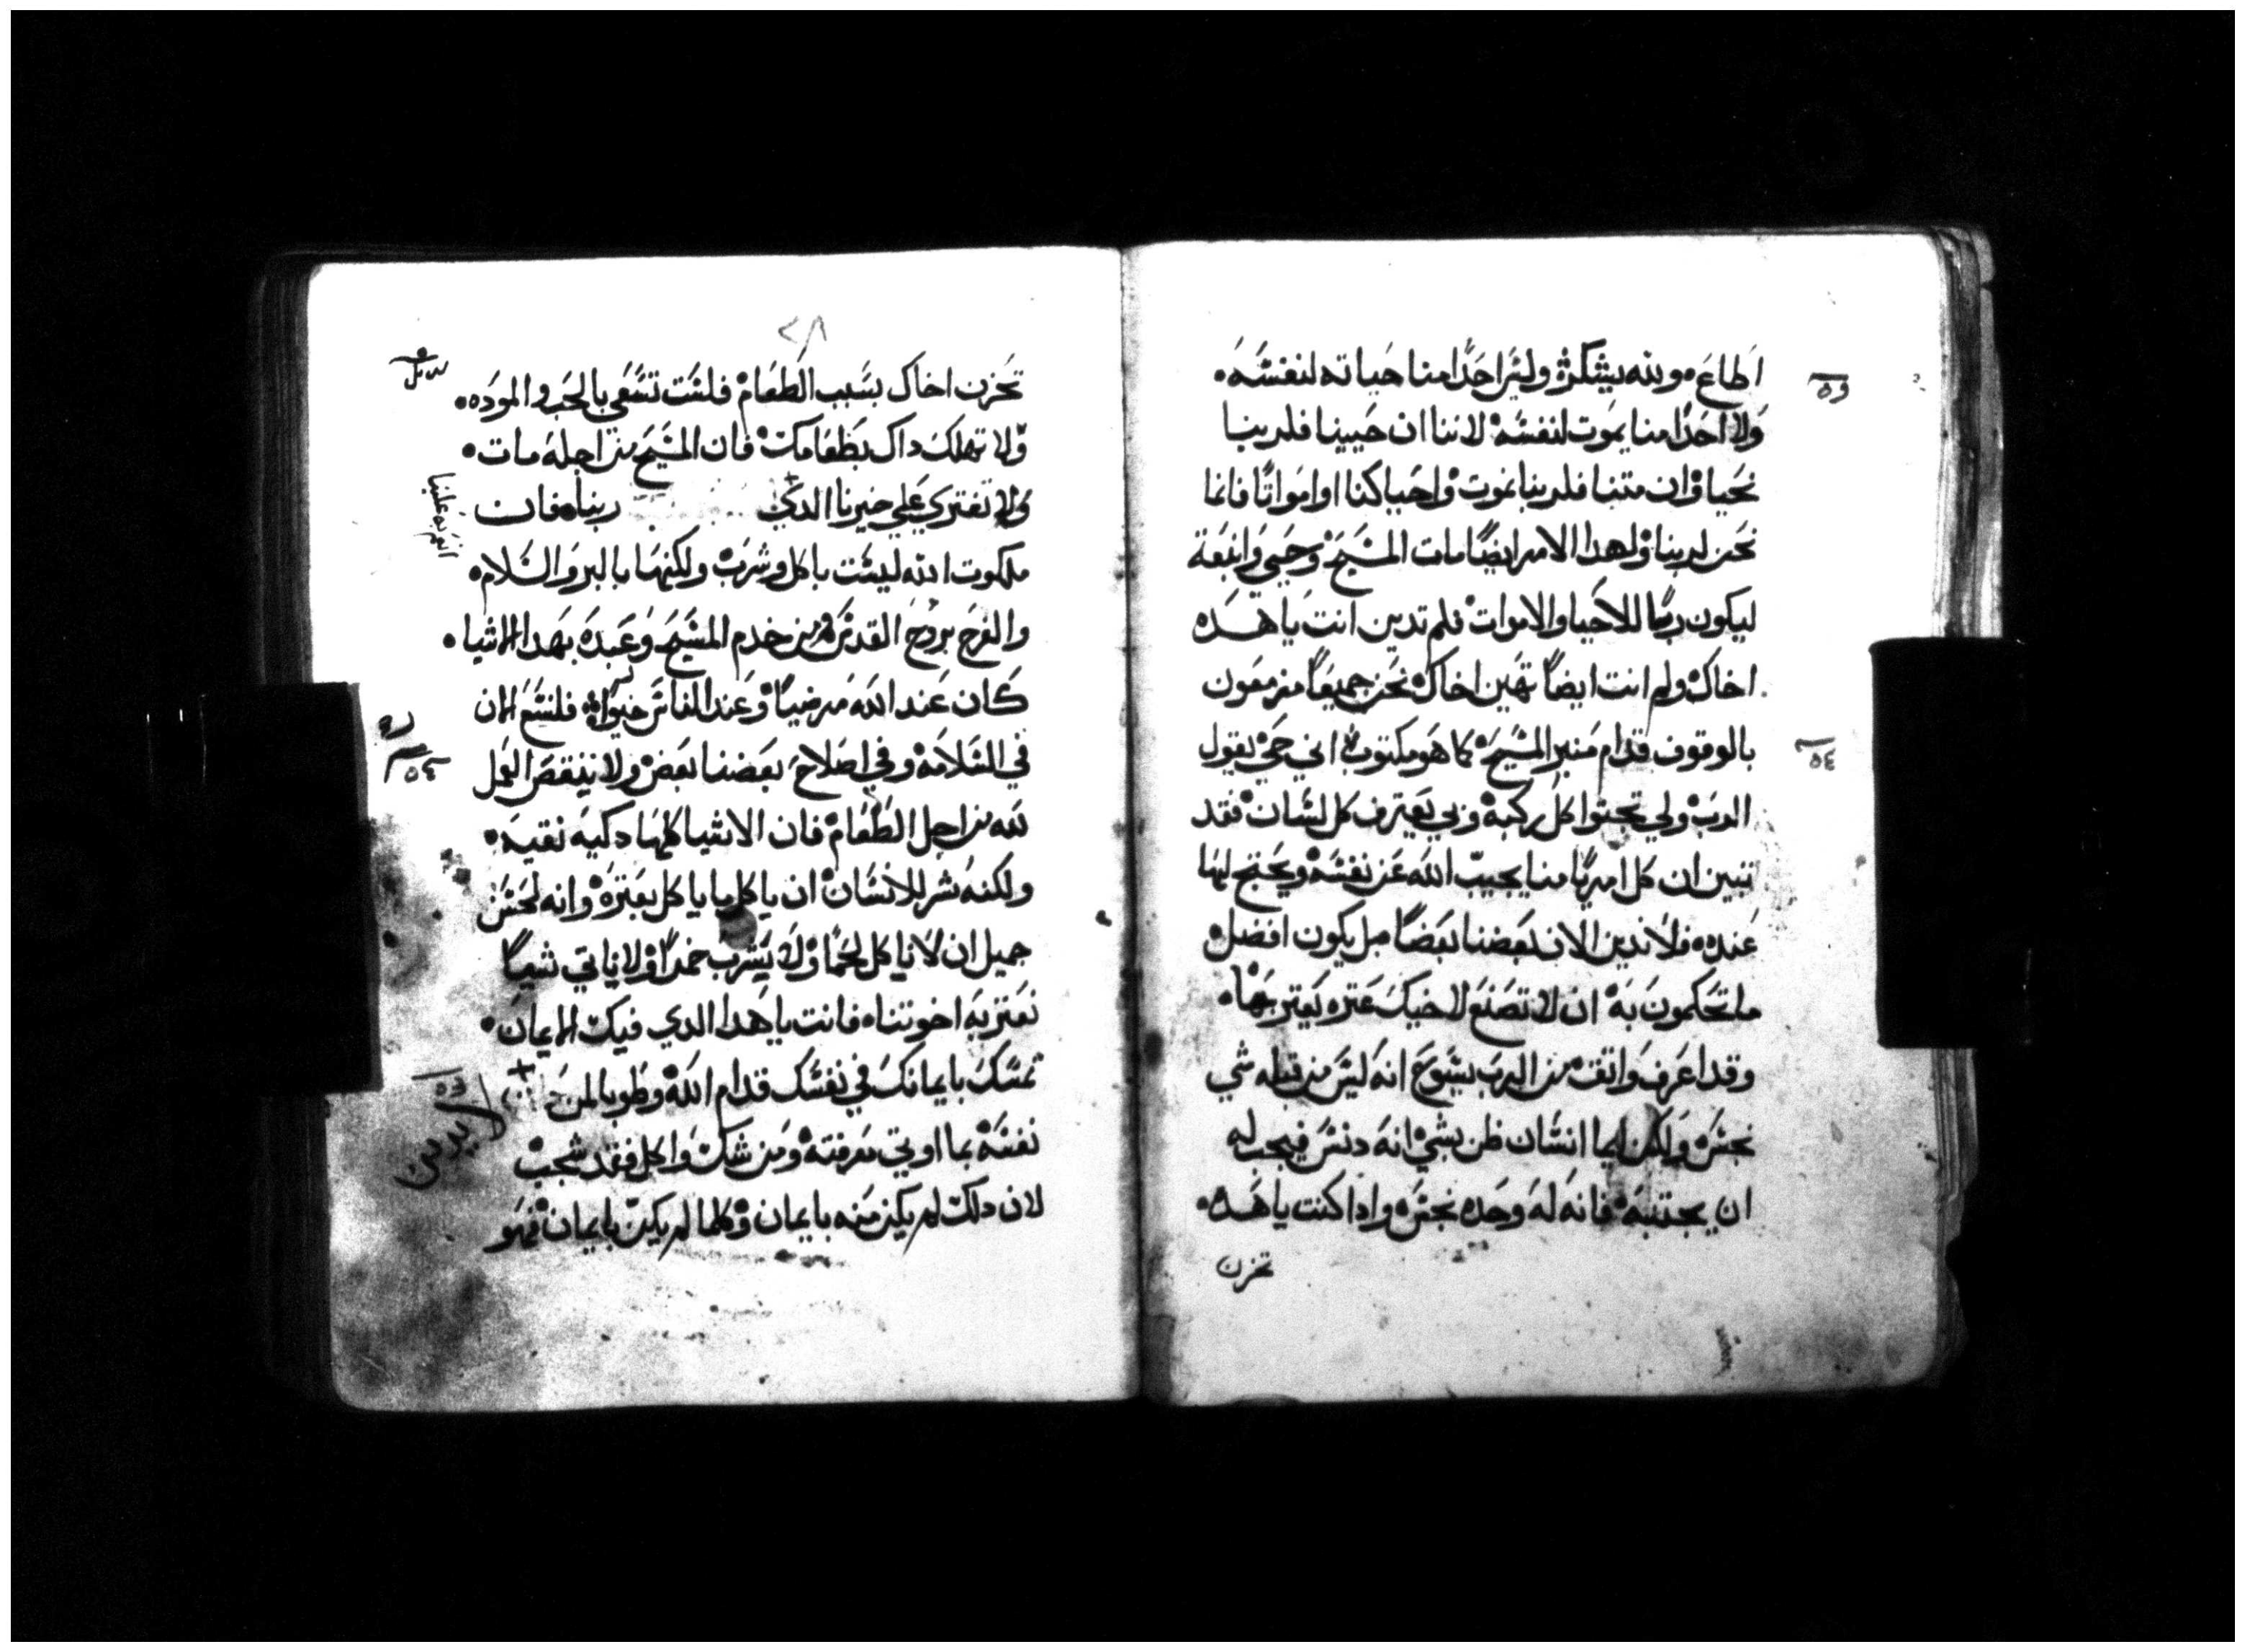 اطاع وبته يشكر وليس احدا منا حياته لنفسه
ولا احدا منا يموت لنفسه لاننا ان حيينا فلربنا
نحيا وان متنا فلربنا نموت واحيا كنا او امواتا فانما
نحن لربنا ولهدا الامر ايضا مات المسيح وحيي وانبعة
ليكون ربا للاحيا والاموات فلم تدين انت يا هده
اخاك ولم انت ايضا تهين اخاك نحن جميعا مزمعون
بالوقوف قدام منبر المسيح كما هو مكتوب اني حي يقول
الرب ولي تجتوا كل ركبة وبي يعترف كل لسان فقد
تبين ان كل امريا منا يجيب الله عن نفسه ويحتج لها
عنده فلا ندين الان بعضنا بعضا بل يكون افضل
ما تحكمون به ان لا تصنع لاخيك عتره يعتر بها
وقد اعرف واتق من الرب يسوع انه ليس من قبله شي
نجس ولكن ايما انسان ظن بشي انه دنس فيجب له
ان يجتنبه فانه له وحده نجس وادا كنت يا هده
تحزن
٥٣
٥٤
٢٨
تحزن اخاك بسبب الطعام فلست تسعي بالحب والموده
ولا تهلك داك بطعامك فان المسيح من اجله مات
ولا تفتري علي خيرنا الدي ربنا فان
ملكوت الله ليست باكل وشرب ولكنها بالبر والسلام
والفرح بروح القدس فمن خدم المسيح وعبده بهدا الاشيا
كان عند الله مرضيا وعند الناس خيرا فلنسع الان
في السلامة وفي اصلاح بعضنا بعض ولا ننقص العمل
لله من اجل الطعام فان الاشيا كلها دكيه نقيه
ولكنه شر للانسان ان ياكل ما ياكل بعتره وانه لحسن
جميل ان لا ناكل لحما ولا يشرب خمرا ولا ناتي شيا
نعتر به اخوتنا فانت يا هدا الدي فيك الايمان
تمسك بايمانك في نفسك قدام الله وطوبا لمن
نفسه بما اوتي معرفته ومن شك واكل فقد شجب
لان دلك لم يكن منه بايمان وكلما لم يكن بايمان فهو
انعم به علينا
٥٤
٥٣
لا يدين